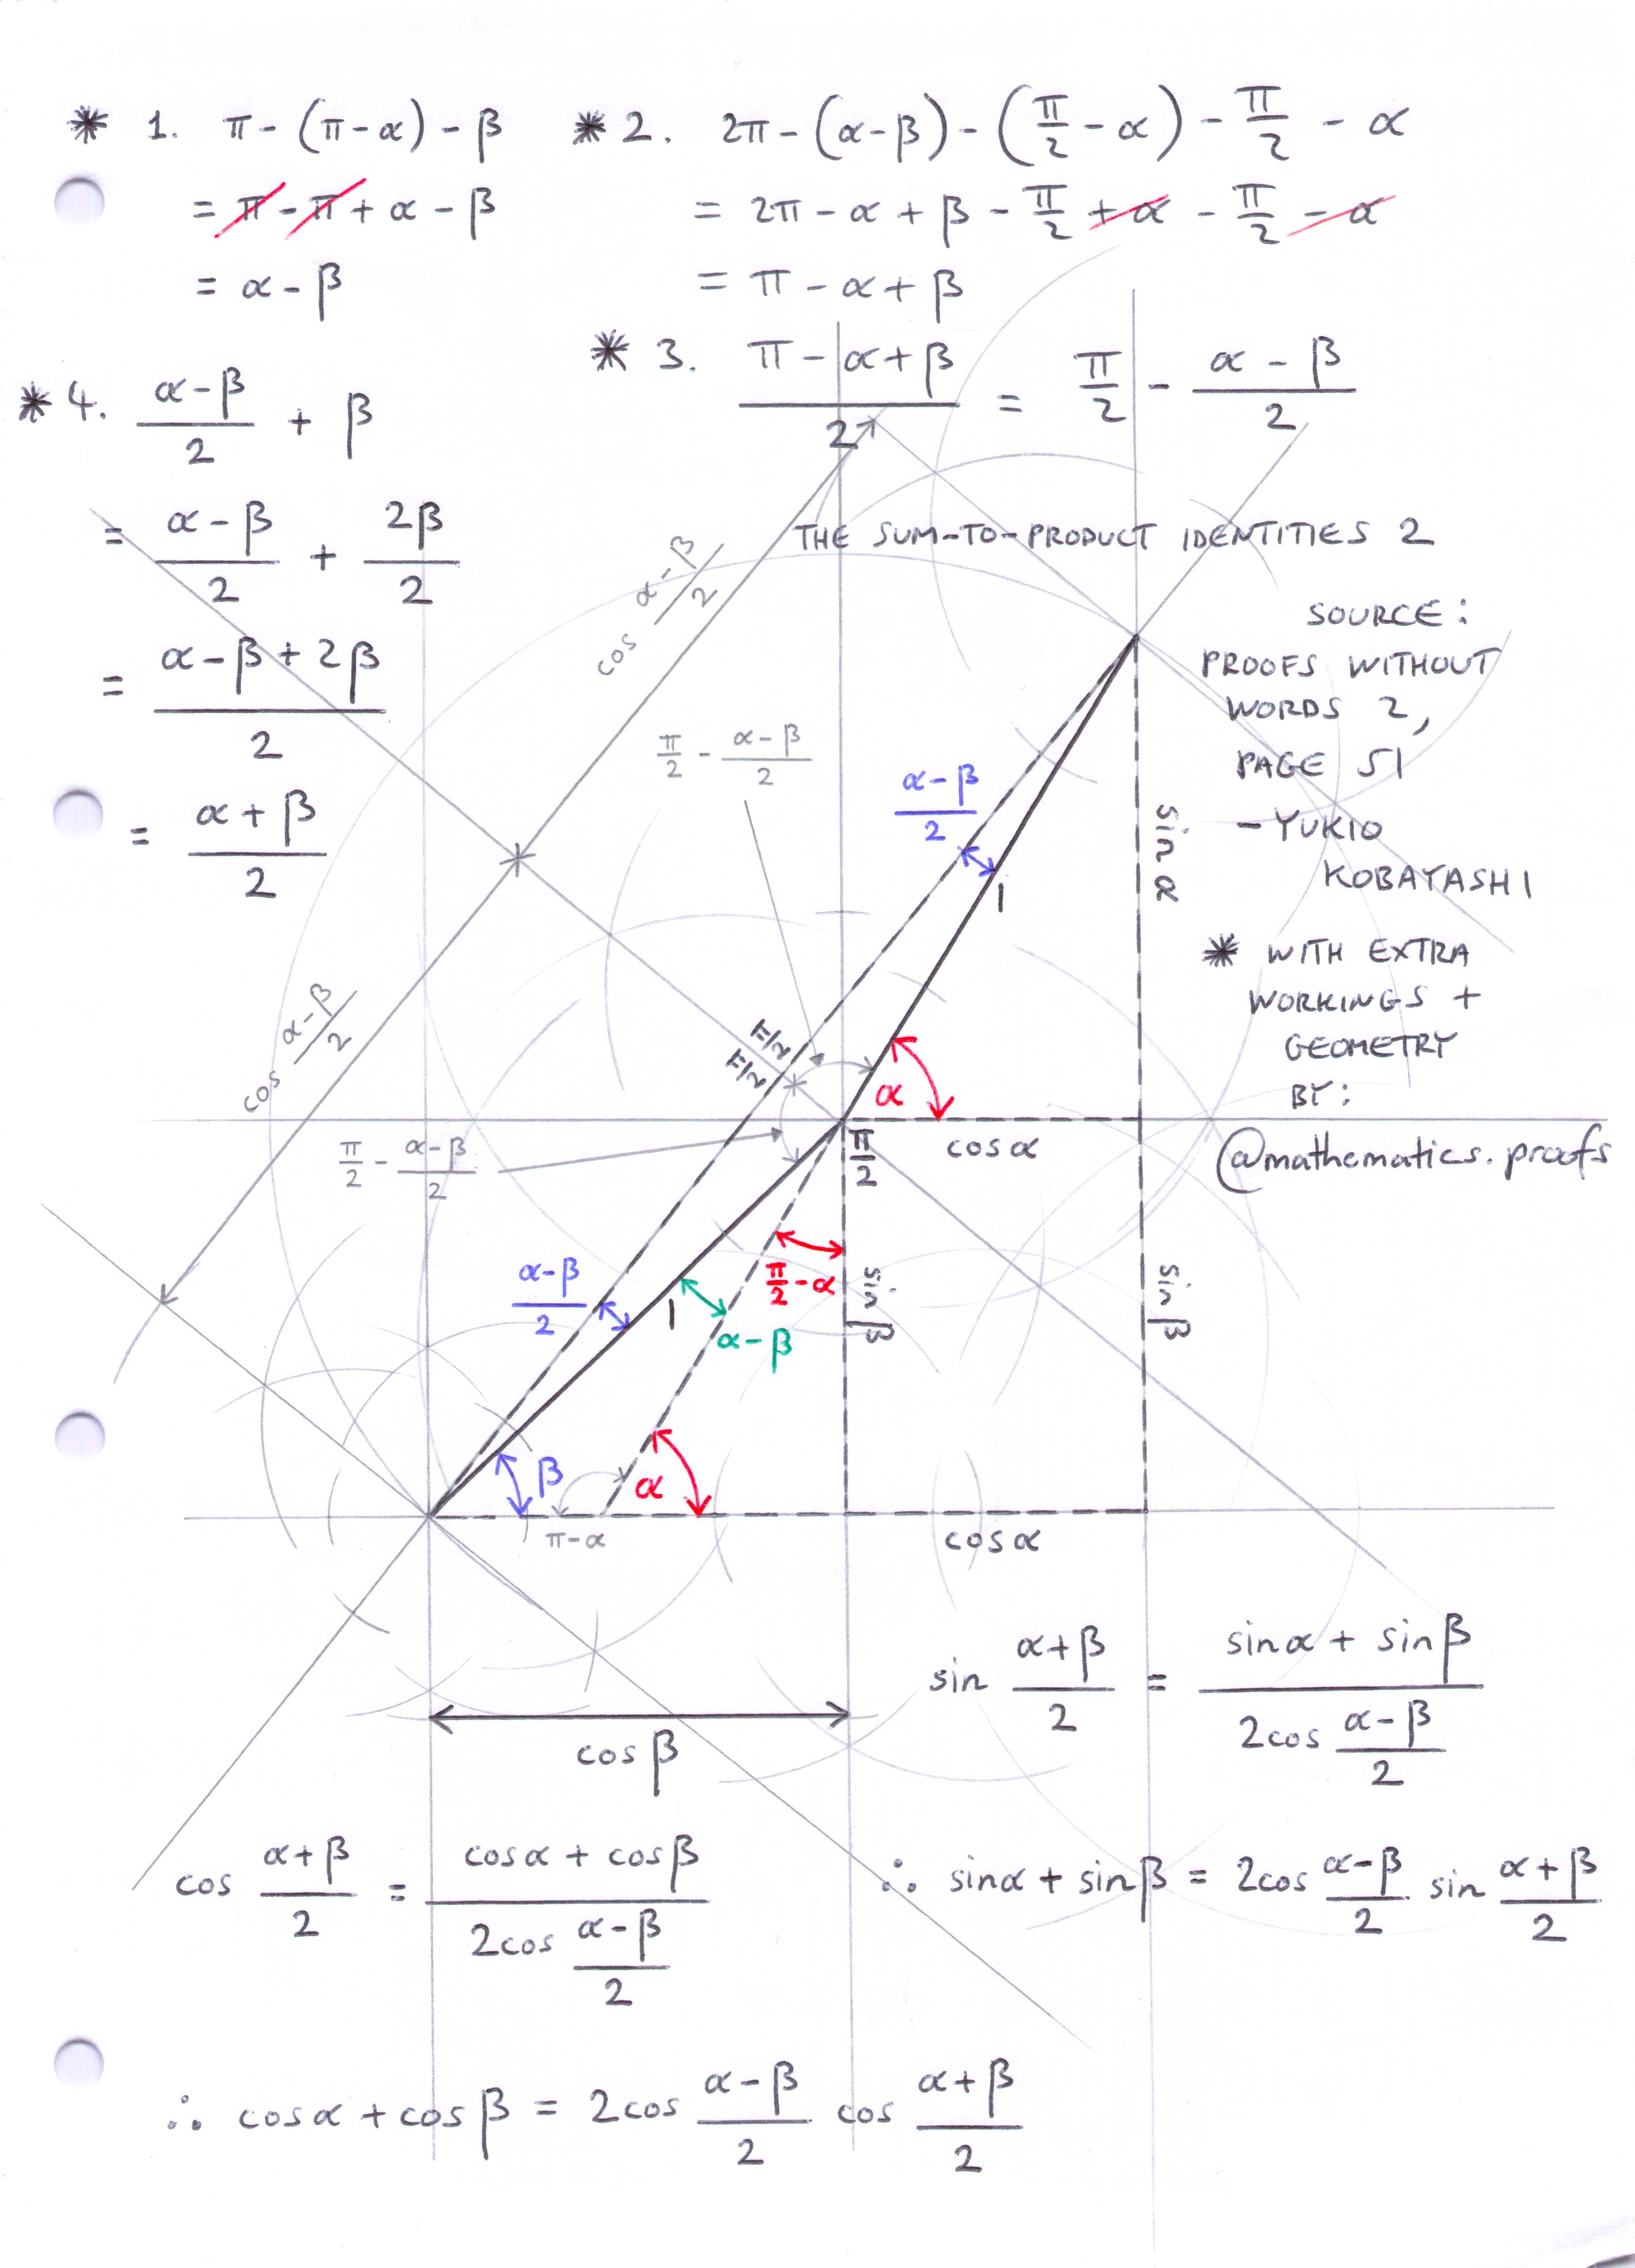 * 1. π - (π - α) - β
= π - π + α - β
= α - β
* 2. 2π - (α - β) - (π/2 - α) - π/2 - α
= 2π - α + β - π/2 + α - π/2 - α
= π - α + β
* 3. (π - α + β)/2 = π/2 - (α - β)/2
* 4. (α - β)/2 + β
= (α - β)/2 + 2β/2
= (α - β + 2β)/2
= (α + β)/2
THE SUM-TO-PRODUCT IDENTITIES 2
SOURCE:
PROOFS WITHOUT
WORDS 2,
PAGE 51
- YUKIO
KOBAYASHI
* WITH EXTRA
WORKINGS +
GEOMETRY
BY:
@mathematics.proofs
cos (α - β)/2
π/2 - (α - β)/2
(α - β)/2
1
sin α
cos (α - β)/2
π/2
π/2
α
cos α
π/2 - (α - β)/2
π/2
π/2 - α
sin β
sin β
(α - β)/2
1
α - β
β
α
π - α
cos α
cos β
sin (α + β)/2 = (sin α + sin β)/(2cos (α - β)/2)
cos (α + β)/2 = (cos α + cos β)/(2cos (α - β)/2)
∴ sin α + sin β = 2cos (α - β)/2 sin (α + β)/2
∴ cos α + cos β = 2cos (α - β)/2 cos (α + β)/2